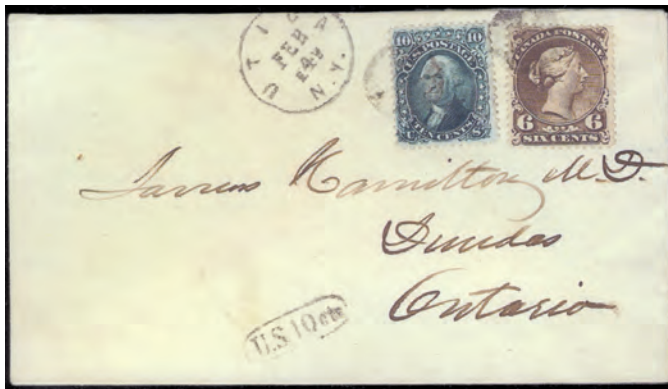 UTICA
FEB
14
N.Y.
10 U.S. POSTAGE 10
TEN CENTS
U S
CANADA POSTAGE
6 6
SIX CENTS
James Hamilton M.D.
Dundas
Ontario
U.S 10 cts